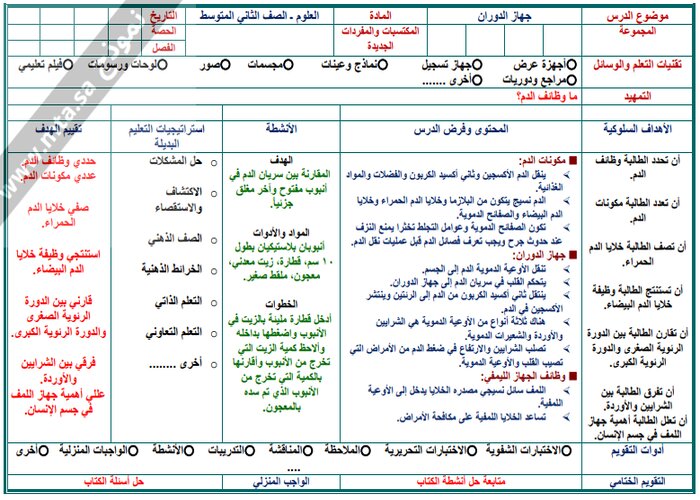 موضوع الدرس جهاز الدوران المادة العلوم ـ الصف الثاني المتوسط التاريخ
المجموعة المكتسبات والمفردات الجديدة الحصة
الفصل
تقنيات التعلم والوسائل أجهزة عرض جهاز تسجيل نماذج وعينات مجسمات صور لوحات ورسومات فيلم تعليمي
مراجع ودوريات أخرى .......
التمهيد ما وظائف الدم؟
الأهداف السلوكية المحتوى وفرض الدرس الأنشطة استراتيجيات التعليم البديلة تقييم الهدف
أن تحدد الطالبة وظائف الدم.
أن تحدد الطالبة مكونات الدم.
أن تصف الطالبة خلايا الدم الحمراء.
أن تستنتج الطالبة وظيفة خلايا الدم البيضاء.
أن تقارن الطالبة بين الدورة الرئوية الصغرى والدورة الرئوية الكبرى.
أن تفرق الطالبة بين الشرايين والأوردة.
أن تعلل الطالبة أهمية جهاز اللمف في جسم الإنسان.
مكونات الدم:
ينقل الدم الأكسجين وثاني أكسيد الكربون والفضلات والمواد الغذائية.
الدم نسيج يتكون من البلازما وخلايا الدم الحمراء وخلايا الدم البيضاء والصفائح الدموية.
تكون الصفائح الدموية وعوامل التجلط تخثرا يمنع النزف عند حدوث جرح ويجب تعرف فصائل الدم قبل عمليات نقل الدم.
جهاز الدوران:
تنقل الأوعية الدموية الدم إلى الجسم.
يتحكم القلب في سريان الدم إلى جهاز الدوران.
ينتقل ثاني أكسيد الكربون من الدم إلى الرئتين وينتشر الأكسجين في الدم.
هناك ثلاثة أنواع من الأوعية الدموية هي الشرايين والأوردة والشعيرات الدموية.
تصلب الشرايين والارتفاع في ضغط الدم من الأمراض التي تصيب القلب والأوعية الدموية.
وظائف الجهاز الليمفي:
اللمف سائل نسيجي مصدره الخلايا يدخل إلى الأوعية اللمفية.
تساعد الخلايا اللمفية على مكافحة الأمراض.
الهدف
المقارنة بين سريان الدم في أنبوب مفتوح وآخر مغلق جزئياً.
المواد والأدوات
أنبوبان بلاستيكيان بطول ١٠ سم، قطارة، زيت معدني، معجون، ملقط صغير.
الخطوات
أدخل قطارة مليئة بالزيت في الأنبوب واضغطها بداخله وألاحظ كمية الزيت التي تخرج من الأنبوب وأقارنها بالكمية التي تخرج من الأنبوب الذي تم سده بالمعجون.
حل المشكلات
الاكتشاف والاستقصاء
الصف الذهني
الخرائط الذهنية
التعلم الذاتي
التعلم التعاوني
أخرى ........
حددي وظائف الدم.
عددي مكونات الدم.
صفي خلايا الدم الحمراء.
استنتجي وظيفة خلايا الدم البيضاء.
قارني بين الدورة الرئوية الصغرى والدورة الرئوية الكبرى.
فرقي بين الشرايين والأوردة.
عللي أهمية جهاز اللمف في جسم الإنسان.
أدوات التقويم الاختبارات الشفوية الاختبارات التحريرية الملاحظة المناقشة التدريبات الأنشطة الواجبات المنزلية أخرى ....
التقويم الختامي متابعة حل أنشطة الكتاب الواجب المنزلي حل أسئلة الكتاب
نموذج www.mta.sa